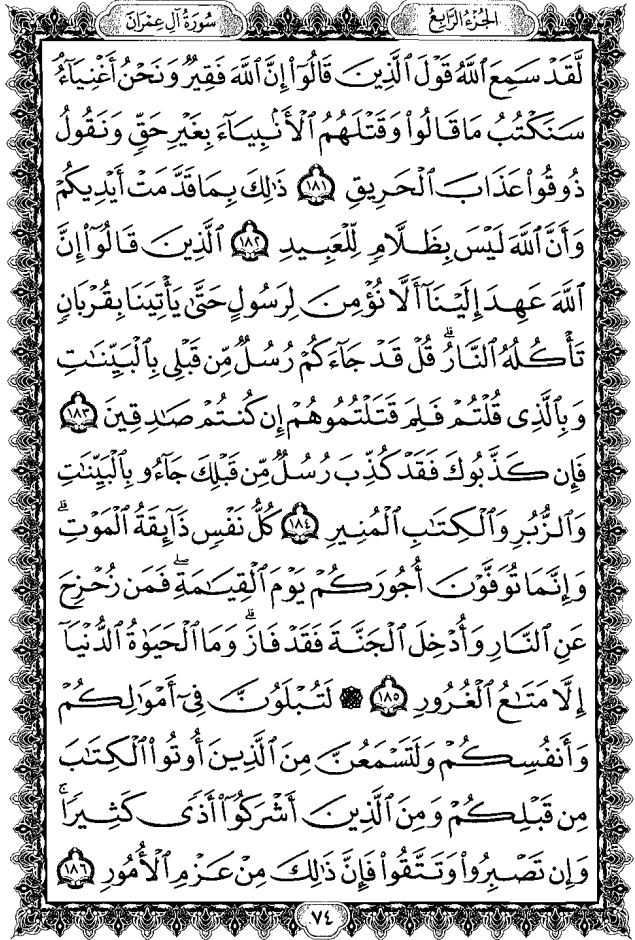 الجُزْءُ الرَّابِعُ
سُورَةُ آلِ عِمْرَانَ
لَّقَدْ سَمِعَ ٱللَّهُ قَوْلَ ٱلَّذِينَ قَالُوٓا۟ إِنَّ ٱللَّهَ فَقِيرٌ وَنَحْنُ أَغْنِيَآءُ ۘ
سَنَكْتُبُ مَا قَالُوا۟ وَقَتْلَهُمُ ٱلْأَنۢبِيَآءَ بِغَيْرِ حَقٍّ وَنَقُولُ
ذُوقُوا۟ عَذَابَ ٱلْحَرِيقِ ١٨١ ذَٰلِكَ بِمَا قَدَّمَتْ أَيْدِيكُمْ
وَأَنَّ ٱللَّهَ لَيْسَ بِظَلَّامٍ لِّلْعَبِيدِ ١٨٢ ٱلَّذِينَ قَالُوٓا۟ إِنَّ
ٱللَّهَ عَهِدَ إِلَيْنَآ أَلَّا نُؤْمِنَ لِرَسُولٍ حَتَّىٰ يَأْتِيَنَا بِقُرْبَانٍ
تَأْكُلُهُ ٱلنَّارُ ۗ قُلْ قَدْ جَآءَكُمْ رُسُلٌ مِّن قَبْلِى بِٱلْبَيِّنَٰتِ
وَبِٱلَّذِى قُلْتُمْ فَلِمَ قَتَلْتُمُوهُمْ إِن كُنتُمْ صَٰدِقِينَ ١٨٣
فَإِن كَذَّبُوكَ فَقَدْ كُذِّبَ رُسُلٌ مِّن قَبْلِكَ جَآءُو بِٱلْبَيِّنَٰتِ
وَٱلزُّبُرِ وَٱلْكِتَٰبِ ٱلْمُنِيرِ ١٨٤ كُلُّ نَفْسٍ ذَآئِقَةُ ٱلْمَوْتِ ۗ
وَإِنَّمَا تُوَفَّوْنَ أُجُورَكُمْ يَوْمَ ٱلْقِيَٰمَةِ ۖ فَمَن زُحْزِحَ
عَنِ ٱلنَّارِ وَأُدْخِلَ ٱلْجَنَّةَ فَقَدْ فَازَ ۗ وَمَا ٱلْحَيَوٰةُ ٱلدُّنْيَآ
إِلَّا مَتَٰعُ ٱلْغُرُورِ ١٨٥ ۞ لَتُبْلَوُنَّ فِىٓ أَمْوَٰلِكُمْ
وَأَنفُسِكُمْ وَلَتَسْمَعُنَّ مِنَ ٱلَّذِينَ أُوتُوا۟ ٱلْكِتَٰبَ
مِن قَبْلِكُمْ وَمِنَ ٱلَّذِينَ أَشْرَكُوٓا۟ أَذًى كَثِيرًا ۚ
وَإِن تَصْبِرُوا۟ وَتَتَّقُوا۟ فَإِنَّ ذَٰلِكَ مِنْ عَزْمِ ٱلْأُمُورِ ١٨٦
٧٤